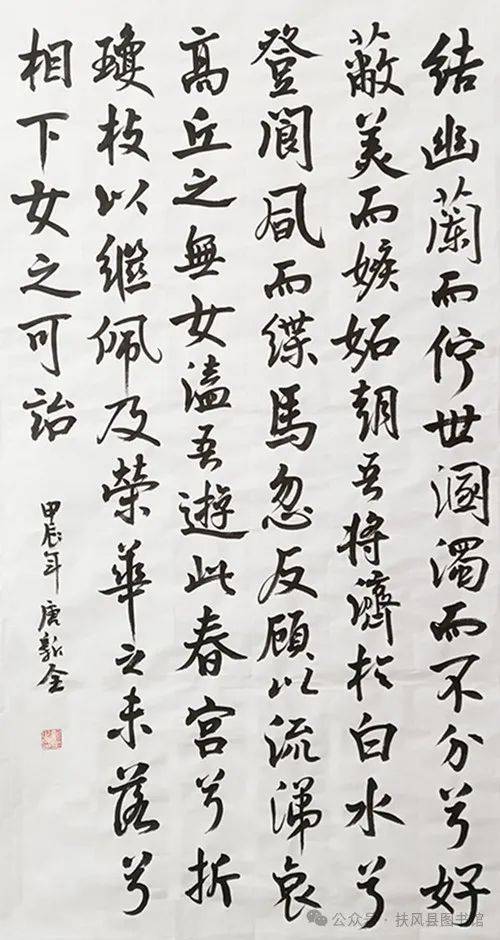 結幽蘭而佇世溷濁而不分兮好
蔽美而嫉妬朝吾將濟於白水兮
登閬風而緤馬忽反顧以流涕哀
高丘之無女溘吾遊此春宮兮折
瓊枝以繼佩及榮華之未落兮
相下女之可詒
甲辰年唐新全
公众号 · 扶风县图书馆